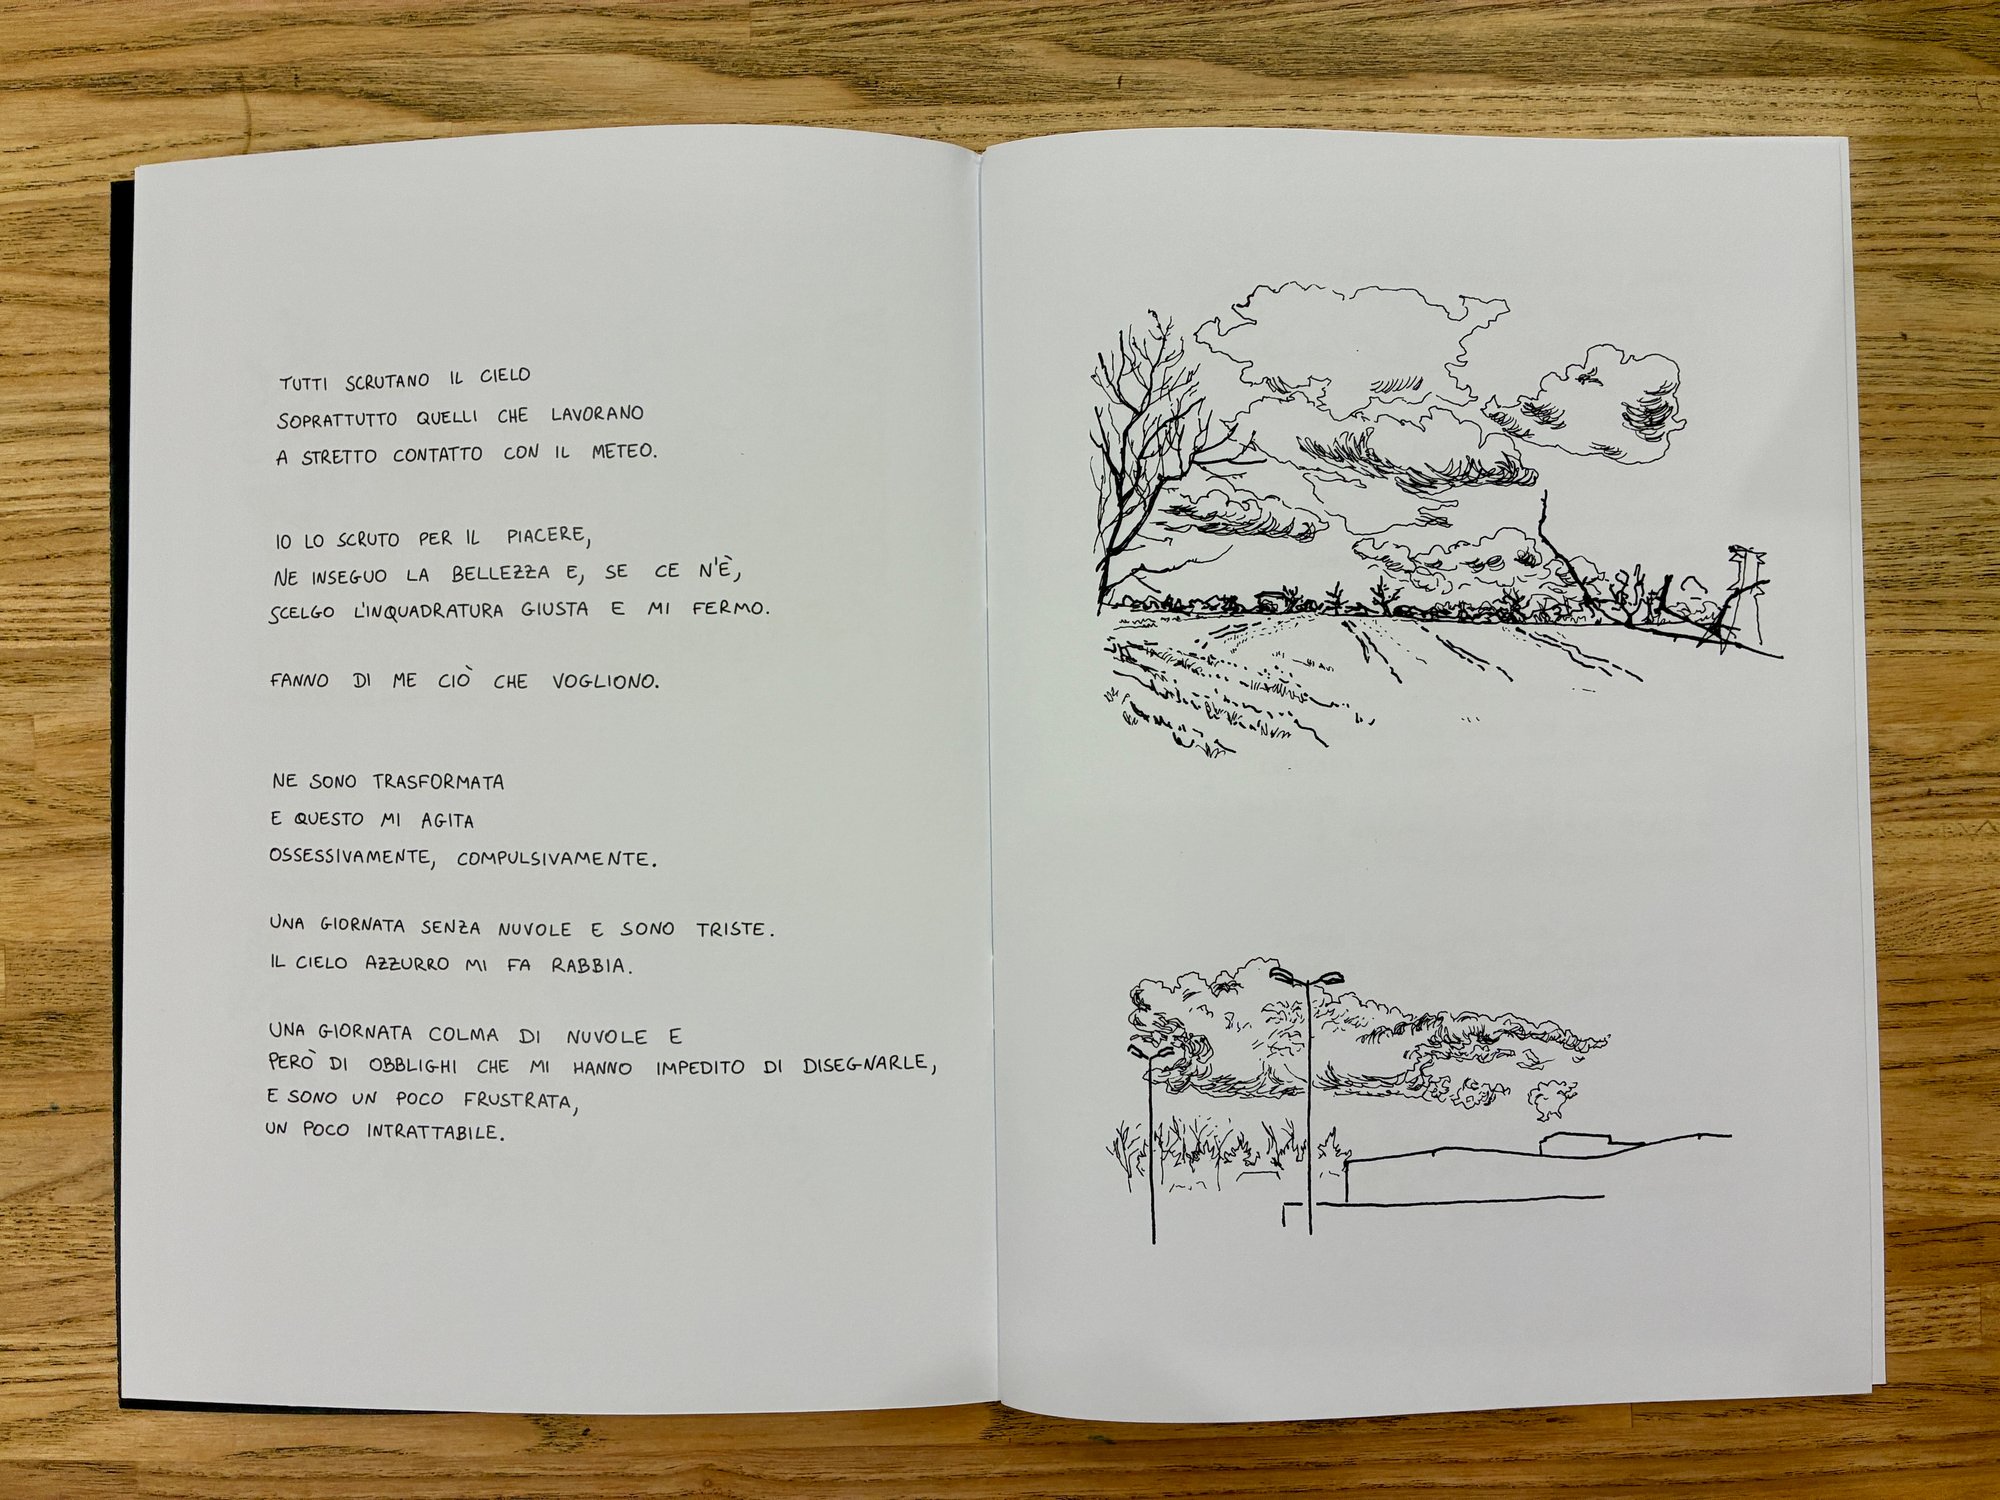 TUTTI SCRUTANO IL CIELO
SOPRATTUTTO QUELLI CHE LAVORANO
A STRETTO CONTATTO CON IL METEO.
IO LO SCRUTO PER IL PIACERE,
NE INSEGUO LA BELLEZZA E, SE CE N'È,
SCELGO L'INQUADRATURA GIUSTA E MI FERMO.
FANNO DI ME CIÒ CHE VOGLIONO.
NE SONO TRASFORMATA
E QUESTO MI AGITA
OSSESSIVAMENTE, COMPULSIVAMENTE.
UNA GIORNATA SENZA NUVOLE E SONO TRISTE.
IL CIELO AZZURRO MI FA RABBIA.
UNA GIORNATA COLMA DI NUVOLE E
PERÒ DI OBBLIGHI CHE MI HANNO IMPEDITO DI DISEGNARLE,
E SONO UN POCO FRUSTRATA,
UN POCO INTRATTABILE.